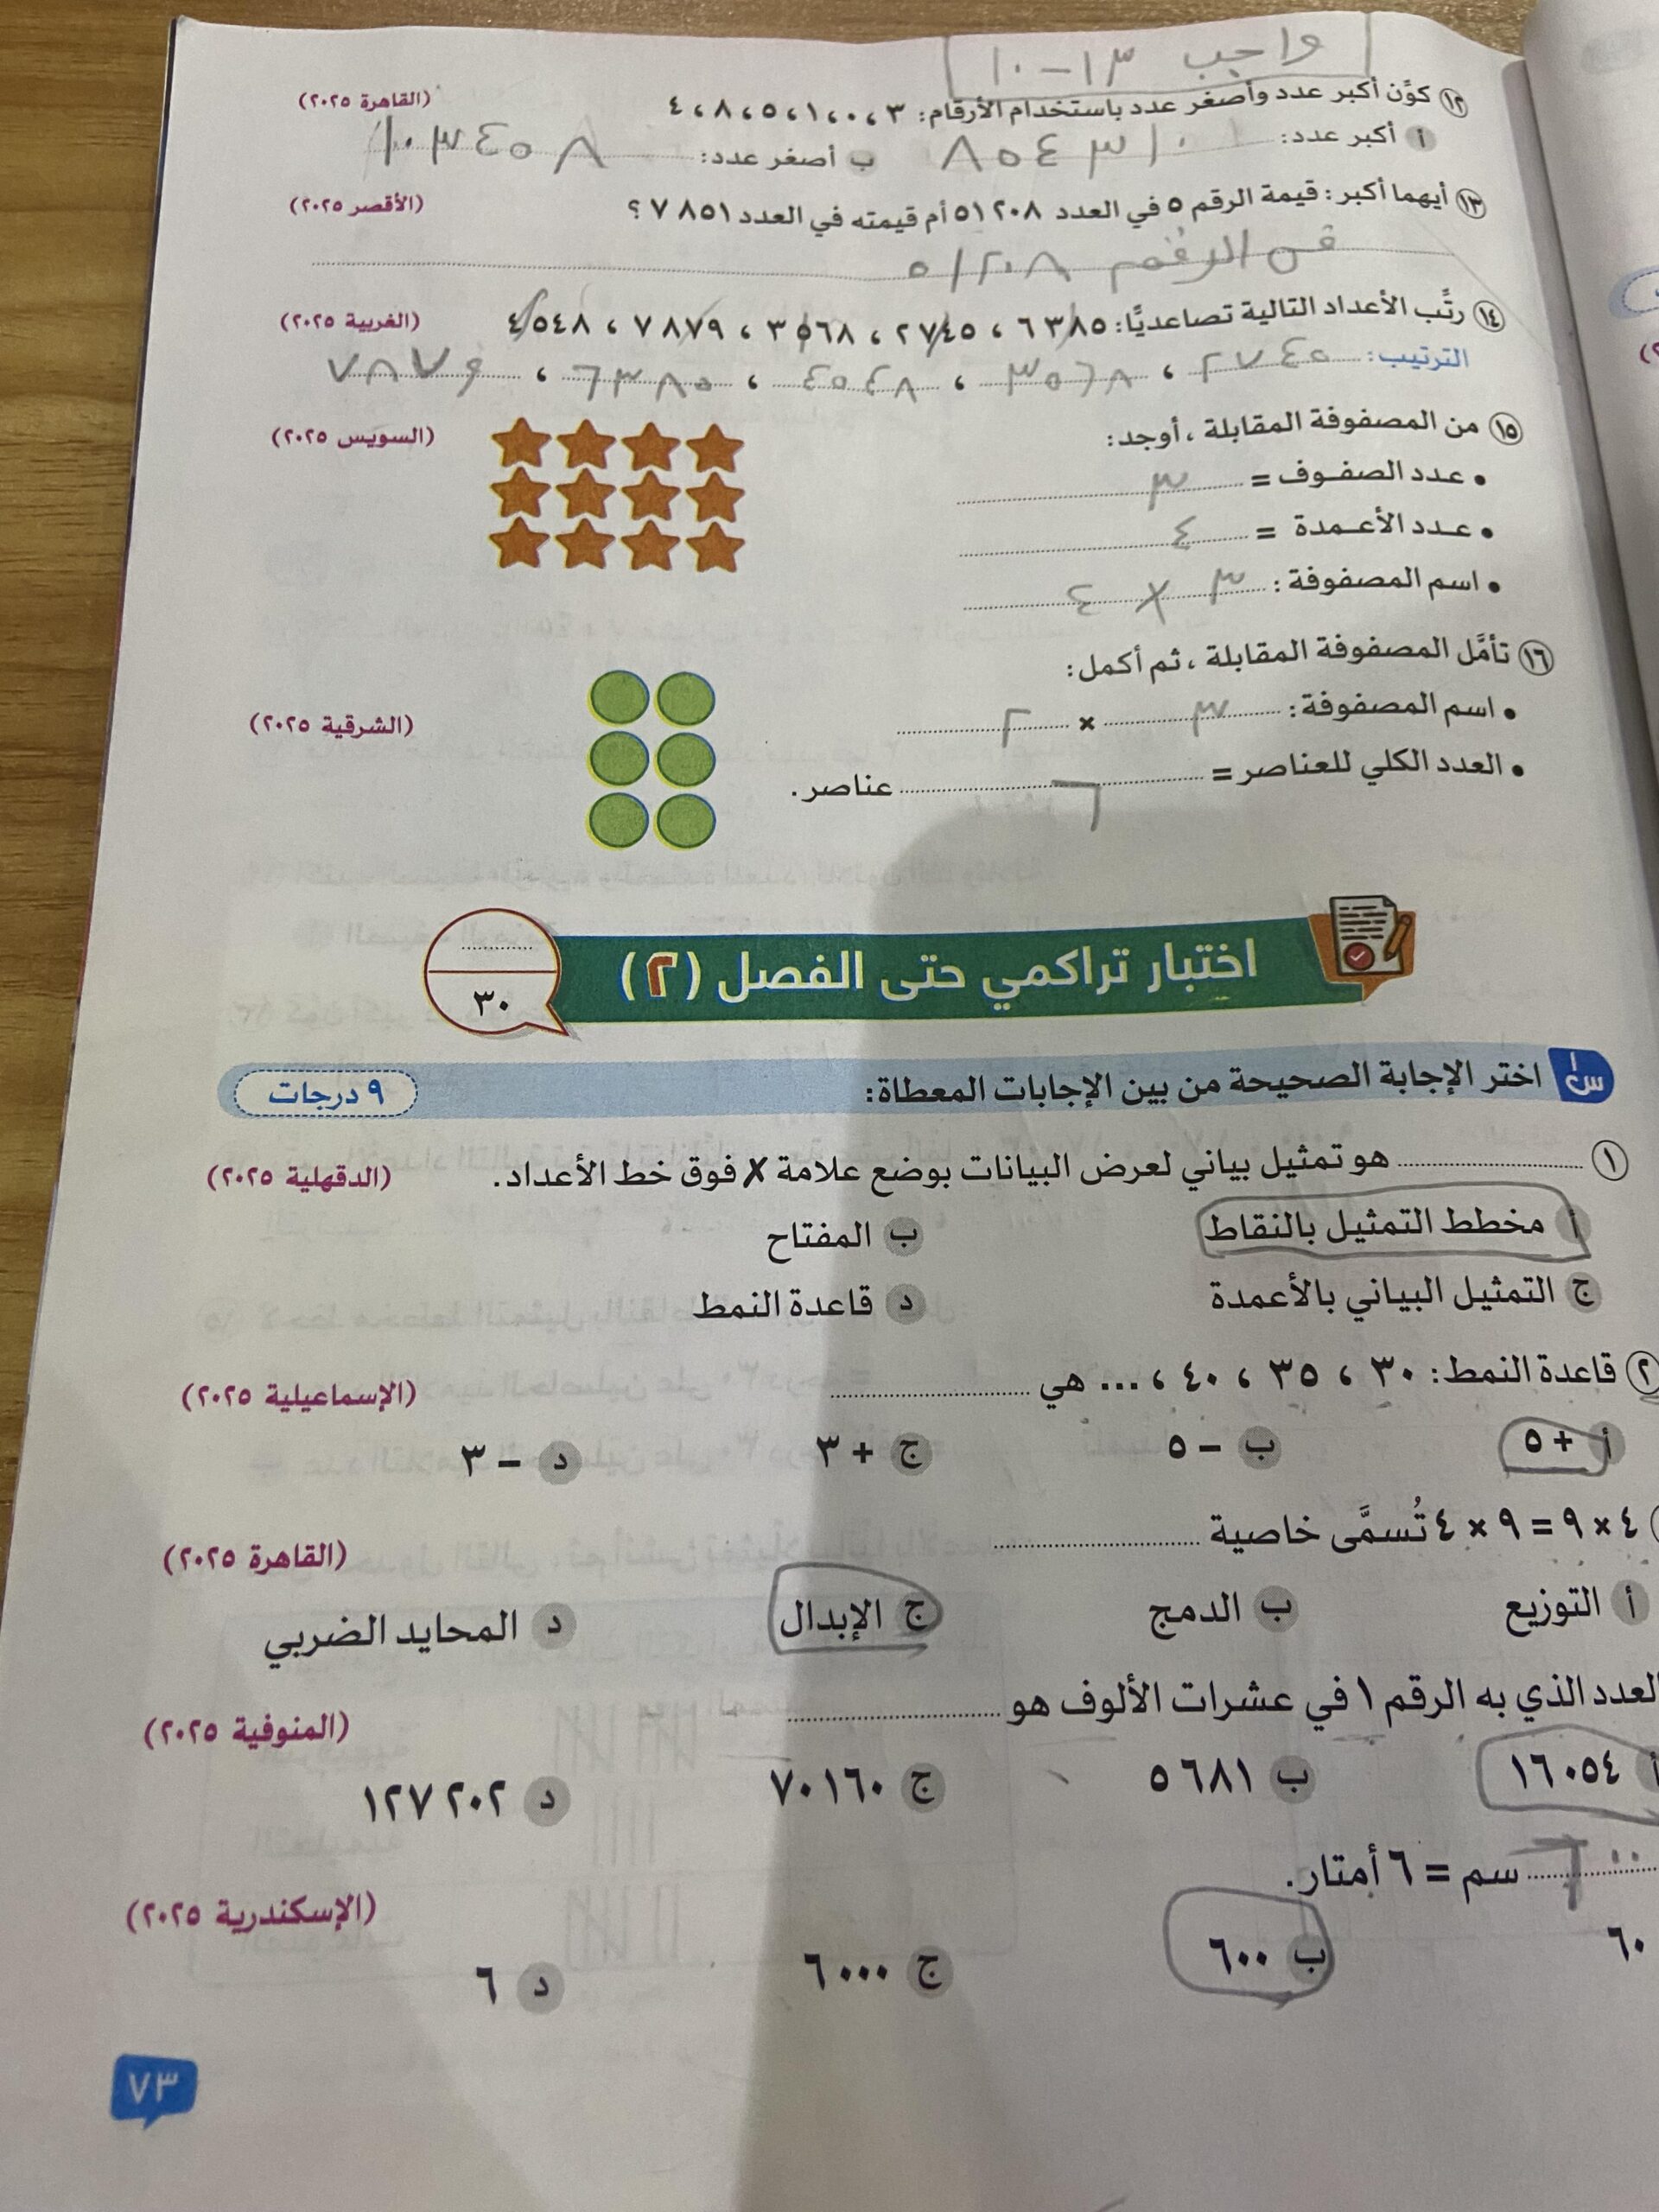 واجب ١٣-١٠
١٢ كوِّن أكبر عدد وأصغر عدد باستخدام الأرقام: ٣ ، ٠ ، ١ ، ٥ ، ٨ ، ٤ (القاهرة ٢٠٢٥)
أ أكبر عدد: ٨٥٤٣١٠ ب أصغر عدد: ١٠٣٤٥٨
١٣ أيهما أكبر: قيمة الرقم ٥ في العدد ٥١٢٠٨ أم قيمته في العدد ٧٨٥١ ؟ (الأقصر ٢٠٢٥)
في الرقم ٥١٢٠٨
١٤ رتِّب الأعداد التالية تصاعديًّا: ٦٣٨٥ ، ٢٧٤٥ ، ٣٥٦٨ ، ٧٨٧٩ ، ٤٥٤٨ (الغربية ٢٠٢٥)
الترتيب: ٢٧٤٥ ، ٣٥٦٨ ، ٤٥٤٨ ، ٦٣٨٥ ، ٧٨٧٩
١٥ من المصفوفة المقابلة ، أوجد: (السويس ٢٠٢٥)
• عدد الصفوف = ٣
• عدد الأعمدة = ٤
• اسم المصفوفة: ٣ × ٤
١٦ تأمَّل المصفوفة المقابلة ، ثم أكمل: (الشرقية ٢٠٢٥)
• اسم المصفوفة: ٣ × ٢
• العدد الكلي للعناصر = ٦ عناصر.
اختبار تراكمي حتى الفصل (٢)
٣٠
س١ اختر الإجابة الصحيحة من بين الإجابات المعطاة: ٩ درجات
١ ............ هو تمثيل بياني لعرض البيانات بوضع علامة X فوق خط الأعداد. (الدقهلية ٢٠٢٥)
أ مخطط التمثيل بالنقاط ب المفتاح
ج التمثيل البياني بالأعمدة د قاعدة النمط
٢ قاعدة النمط: ٣٠ ، ٣٥ ، ٤٠ ، ... هي ............ (الإسماعيلية ٢٠٢٥)
أ + ٥ ب – ٥ ج + ٣ د – ٣
٤ × ٩ = ٩ × ٤ تُسمَّى خاصية ............ (القاهرة ٢٠٢٥)
أ التوزيع ب الدمج ج الإبدال د المحايد الضربي
العدد الذي به الرقم ١ في عشرات الألوف هو ............ (المنوفية ٢٠٢٥)
أ ١٦٠٥٤ ب ٥٦٨١ ج ٧٠١٦٠ د ١٢٧٢٠٢
٦٠٠ سم = ٦ أمتار. (الإسكندرية ٢٠٢٥)
٦٠ ب ٦٠٠ ج ٦٠٠٠ د ٦
٧٣